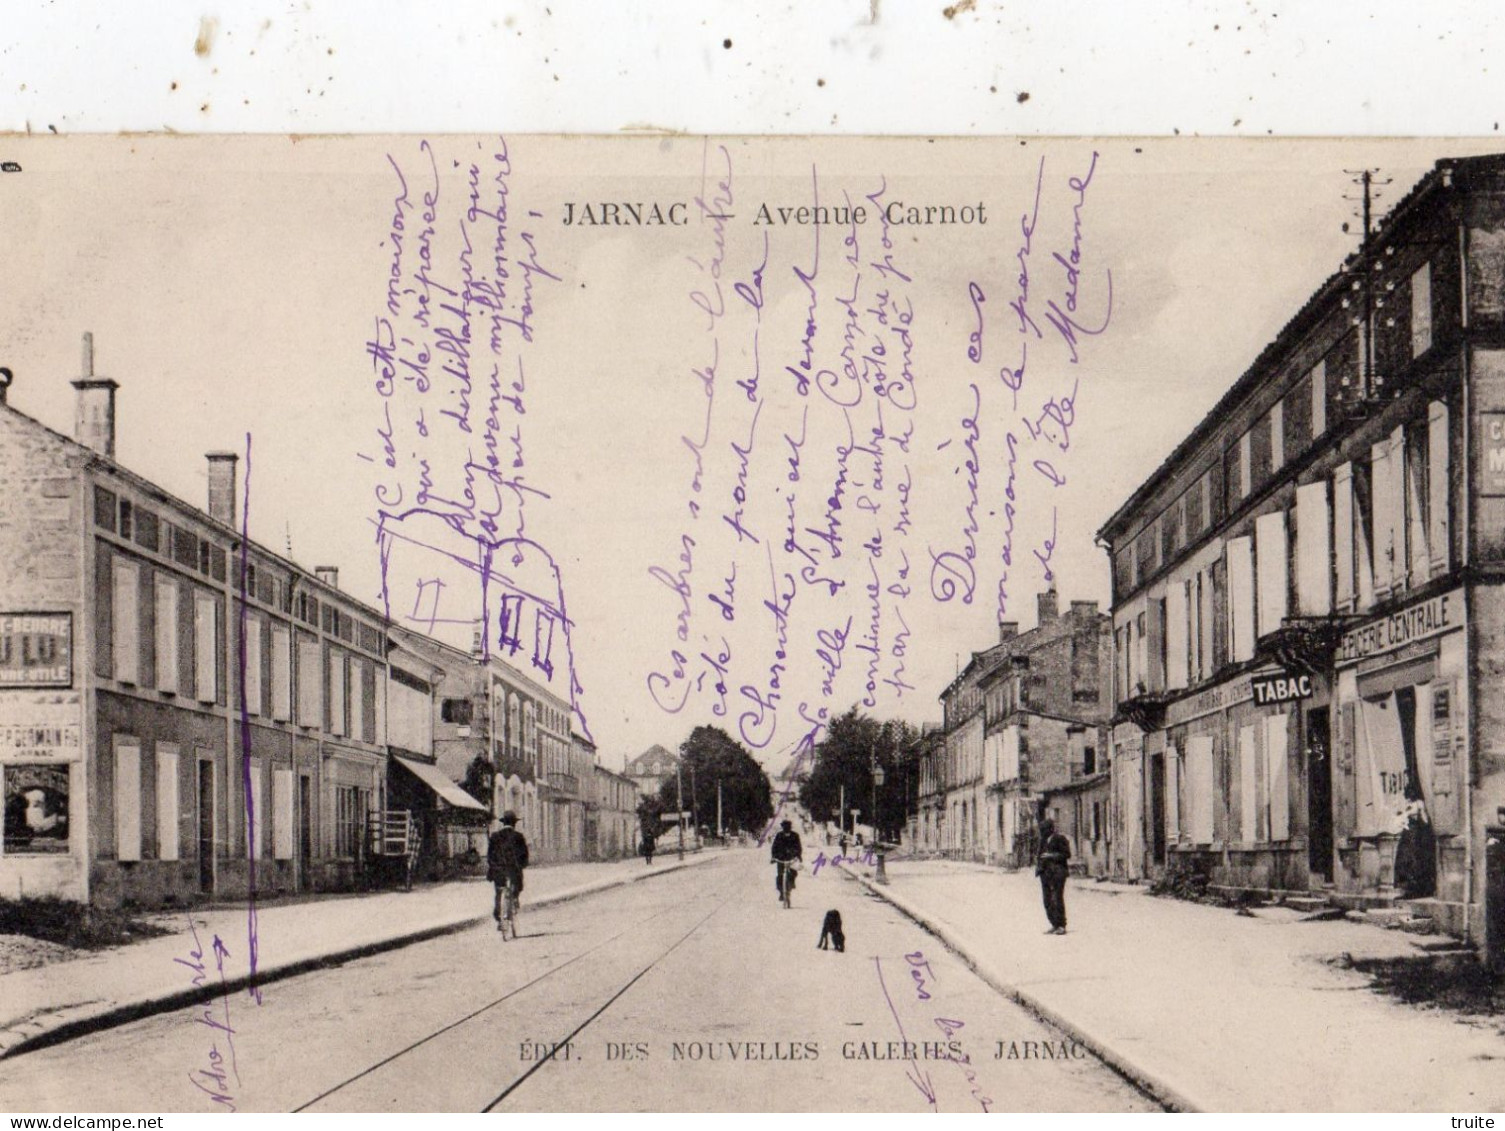 JARNAC — Avenue Carnot
C'est cett maison
qui a été réparée
distillateur qui
est devenu millionnaire
en peu de temps,
Ces arbres sont de l'autre
côté du pont de la
Charente qui est devant
la ville L'Avenue Carnot se
continue de l'autre côté du pont
par la rue de Condé
Derrière ces
maisons le parc
de l'île Madame
TABAC
EPICERIE CENTRALE
TABAC
P. GERMAIN Fils
JARNAC
pont
Notre porte
vers
ÉDIT. DES NOUVELLES GALERIES, JARNAC
truite